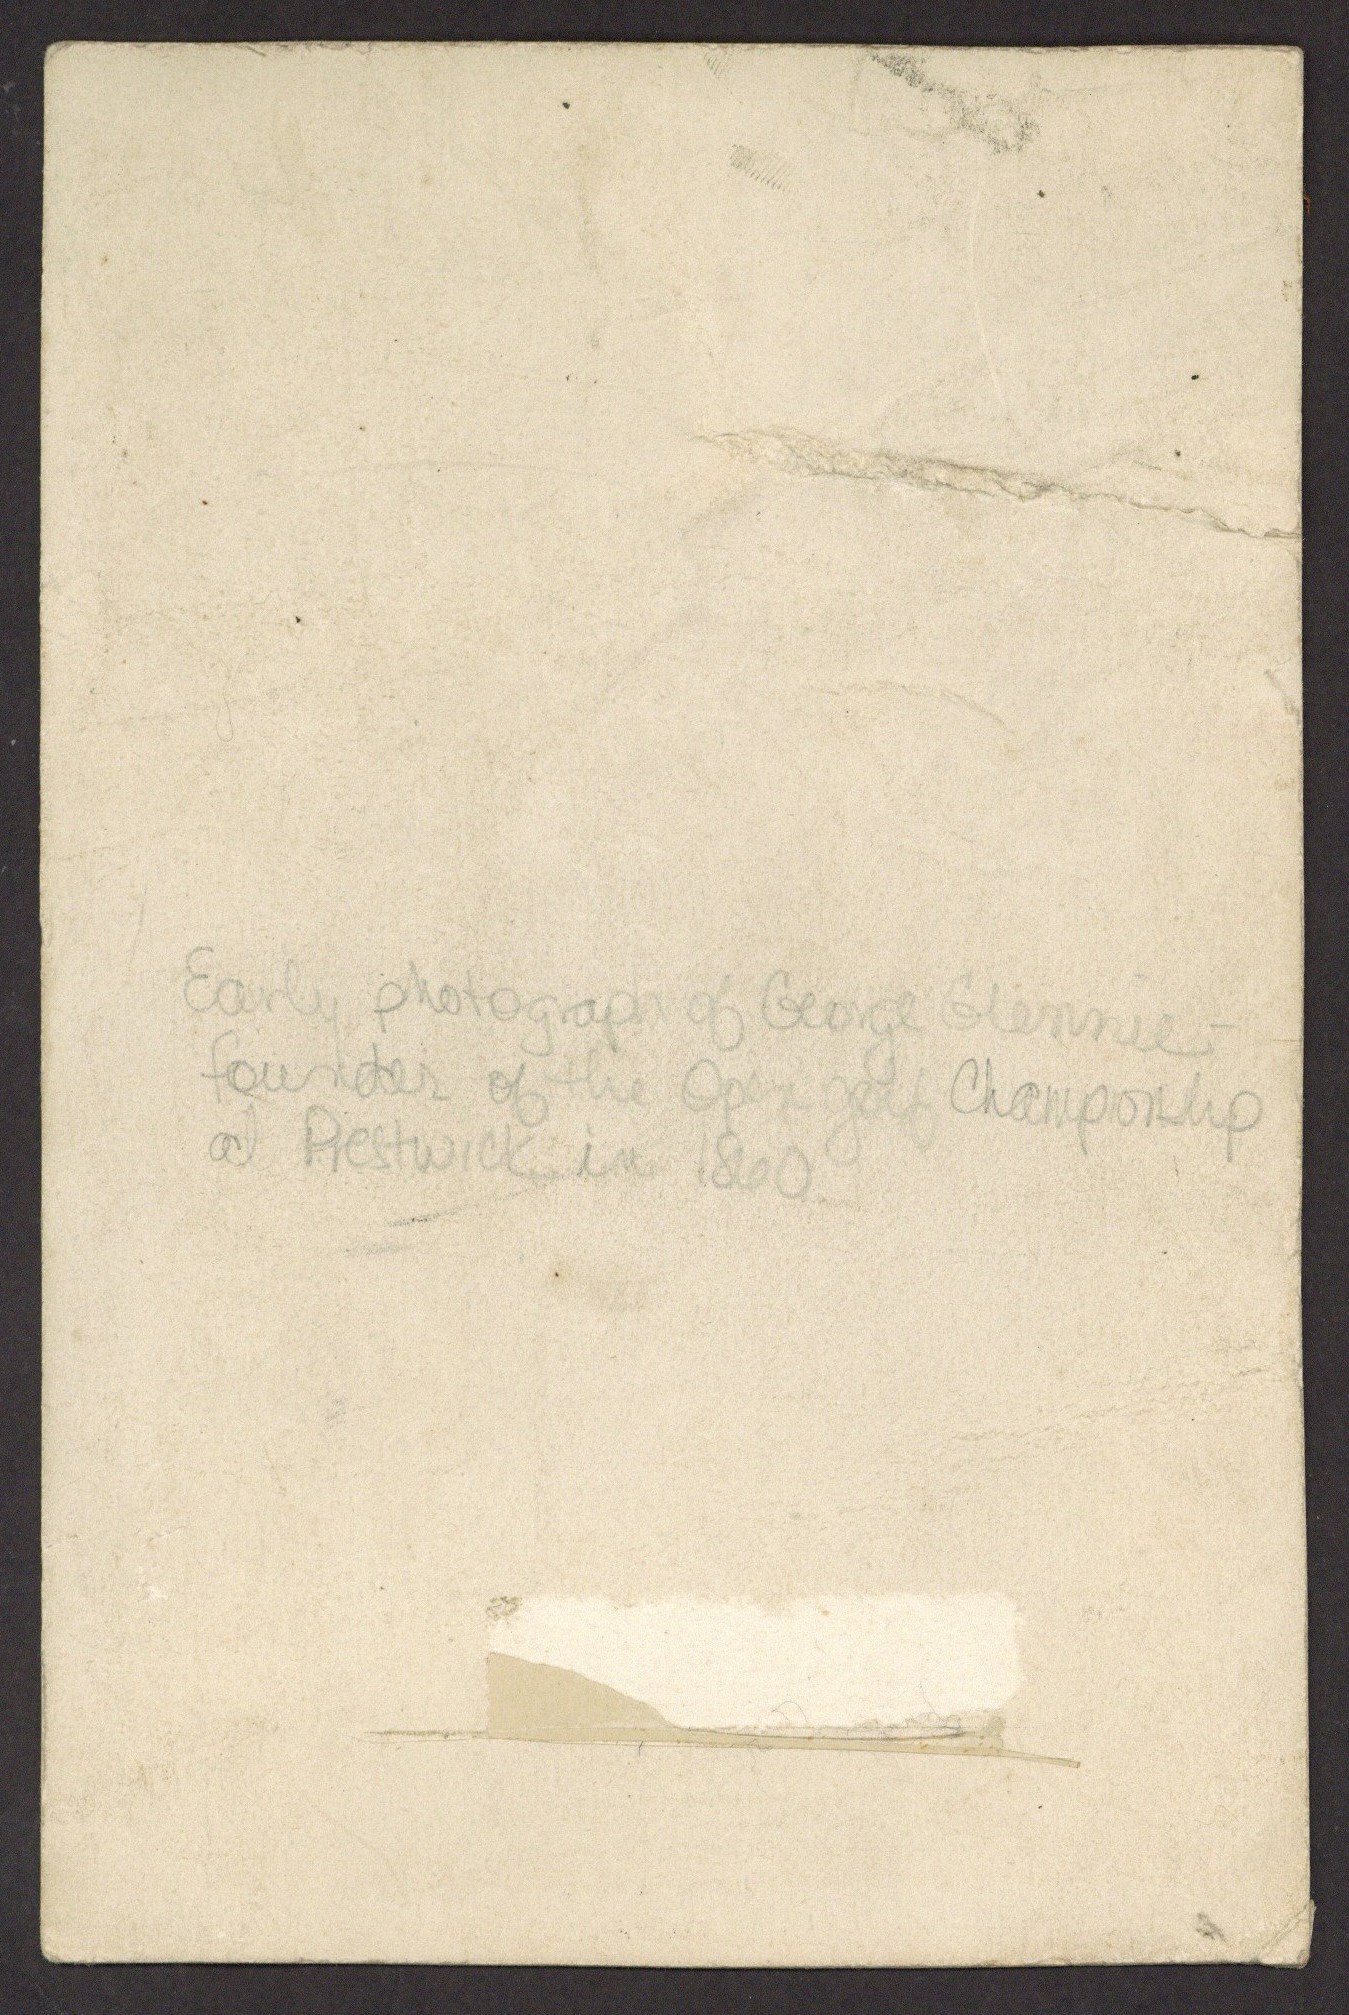 Early photograph of George Glennie -
founder of the Open golf Championship
at Prestwick in 1860